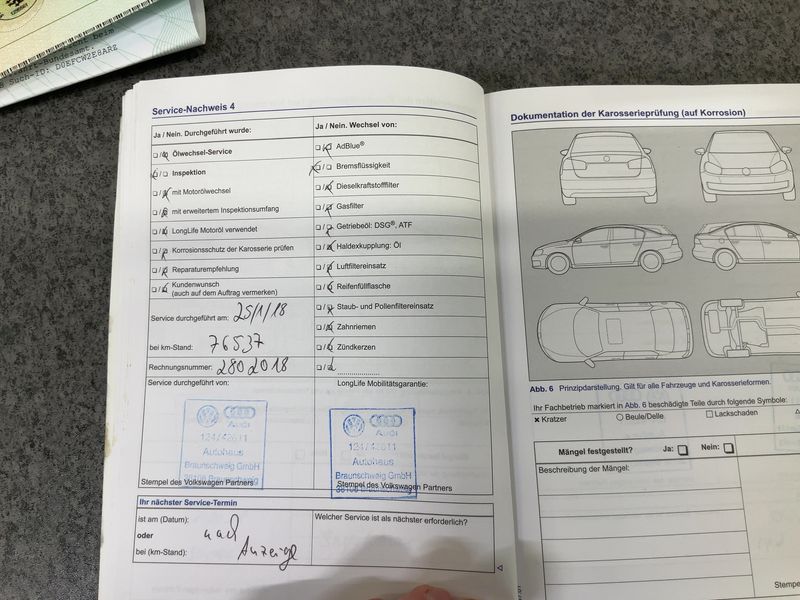 Such-ID: D0EFCW2E8ARZ
Service-Nachweis 4
Ja / Nein. Durchgeführt wurde:
Ölwechsel-Service
Inspektion
mit Motorölwechsel
mit erweitertem Inspektionsumfang
LongLife Motoröl verwendet
Korrosionsschutz der Karosserie prüfen
Reparaturempfehlung
Kundenwunsch
(auch auf dem Auftrag vermerken)
Service durchgeführt am: 25/1/18
bei km-Stand: 76537
Rechnungsnummer: 2802018
Service durchgeführt von:
Audi
Autohaus
Braunschweig GmbH
Stempel des Volkswagen Partners
Ja / Nein. Wechsel von:
AdBlue®
Bremsflüssigkeit
Dieselkraftstofffilter
Gasfilter
Getriebeöl: DSG®, ATF
Haldexkupplung: Öl
Luftfiltereinsatz
Reifenfüllflasche
Staub- und Pollenfiltereinsatz
Zahnriemen
Zündkerzen
LongLife Mobilitätsgarantie:
Audi
Autohaus
Braunschweig GmbH
Stempel des Volkswagen Partners
Ihr nächster Service-Termin
ist am (Datum):
oder
bei (km-Stand):
nach
Anzeige
Welcher Service ist als nächster erforderlich?
Dokumentation der Karosserieprüfung (auf Korrosion)
Abb. 6 Prinzipdarstellung. Gilt für alle Fahrzeuge und Karosserieformen.
Ihr Fachbetrieb markiert in Abb. 6 beschädigte Teile durch folgende Symbole:
Kratzer Beule/Delle Lackschaden
Mängel festgestellt? Ja: Nein:
Beschreibung der Mängel: